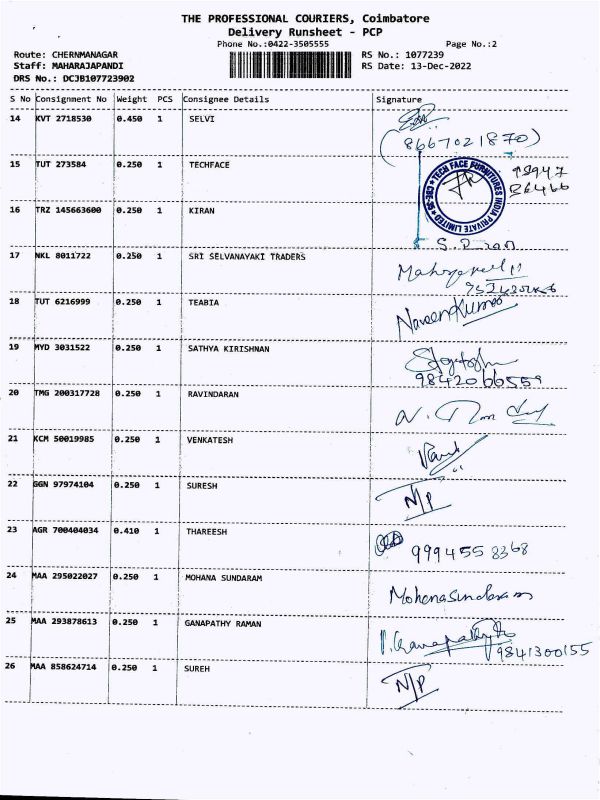 THE PROFESSIONAL COURIERS, Coimbatore
Delivery Runsheet - PCP
Phone No.:0422-3505555 Page No.:2
Route: CHERNMANAGAR RS No.: 1077239
Staff: MAHARAJAPANDI RS Date: 13-Dec-2022
DRS No.: DCJB107723902
S No Consignment No Weight PCS Consignee Details Signature
14 KVT 2718530 0.450 1 SELVI
(8667021870)
15 TUT 273584 0.250 1 TECHFACE
TECH FACE FURNITURES INDIA PRIVATE LIMITED CBE-35
98947
86466
16 TRZ 145663600 0.250 1 KIRAN
17 NKL 8011722 0.250 1 SRI SELVANAYAKI TRADERS
18 TUT 6216999 0.250 1 TEABIA
NaveenKumar
19 MYD 3031522 0.250 1 SATHYA KIRISHNAN
9842066559
20 TMG 200317728 0.250 1 RAVINDARAN
21 KCM 50019985 0.250 1 VENKATESH
22 GGN 97974104 0.250 1 SURESH
N/P
23 AGR 700404034 0.410 1 THAREESH
9994558368
24 MAA 295022027 0.250 1 MOHANA SUNDARAM
Mohanasundaram
25 MAA 293878613 0.250 1 GANAPATHY RAMAN
9841300155
26 MAA 858624714 0.250 1 SUREH
N/P